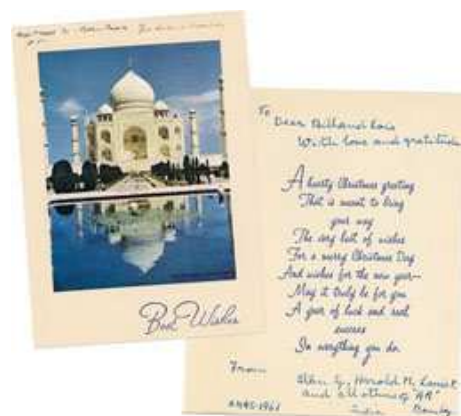 Best Wishes
To
Dear Bill and Lois
With love and gratitude
A hearty Christmas greeting
That is meant to bring
your way
The very best of wishes
For a merry Christmas Day
And wishes for the new year—
May it truly be for you
A year of luck and real
success
In everything you do.
From
Harold M,
and all others of "AA"
Bombay
1961